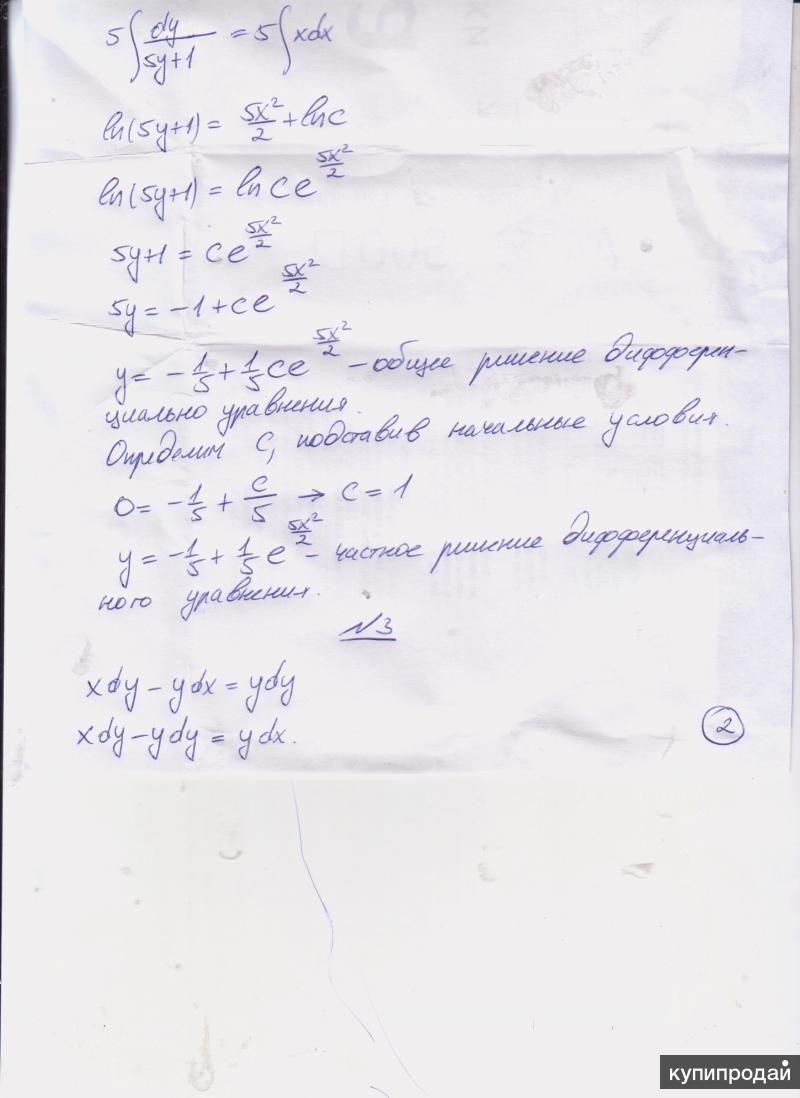 5∫dy/(5y+1) = 5∫xdx
ln(5y+1) = 5x²/2 + lnc
ln(5y+1) = ln ce^(5x²/2)
5y+1 = ce^(5x²/2)
5y = -1 + ce^(5x²/2)
y = -1/5 + 1/5 ce^(5x²/2) - общее решение дифферен-
циально уравнения.
Определим С, подставив начальные условия.
0 = -1/5 + c/5 → c = 1
y = -1/5 + 1/5 e^(5x²/2) - частное решение дифференциаль-
ного уравнения.
№3
xdy - ydx = ydy
xdy - ydy = ydx.
2
купипродай